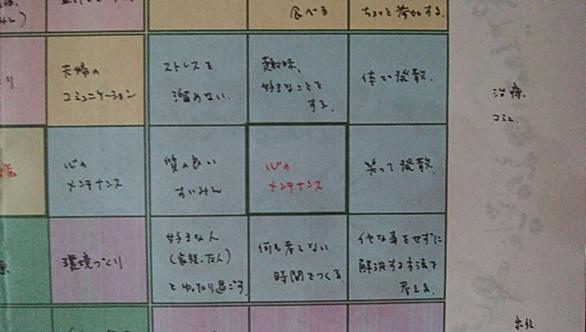 食べる
ちょっと参加する。
夫婦の
コミュニケーション
ストレスを
溜めない。
趣味、
好きなことを
する。
体で発散。
治療、
コミュ
心の
メンテナンス
質の良い
すいみん
心の
メンテナンス
笑って発散。
環境づくり
好きな人
(家族、友人)
とゆったり過ごす。
何も考えない
時間をつくる。
解決する方法で
考える。